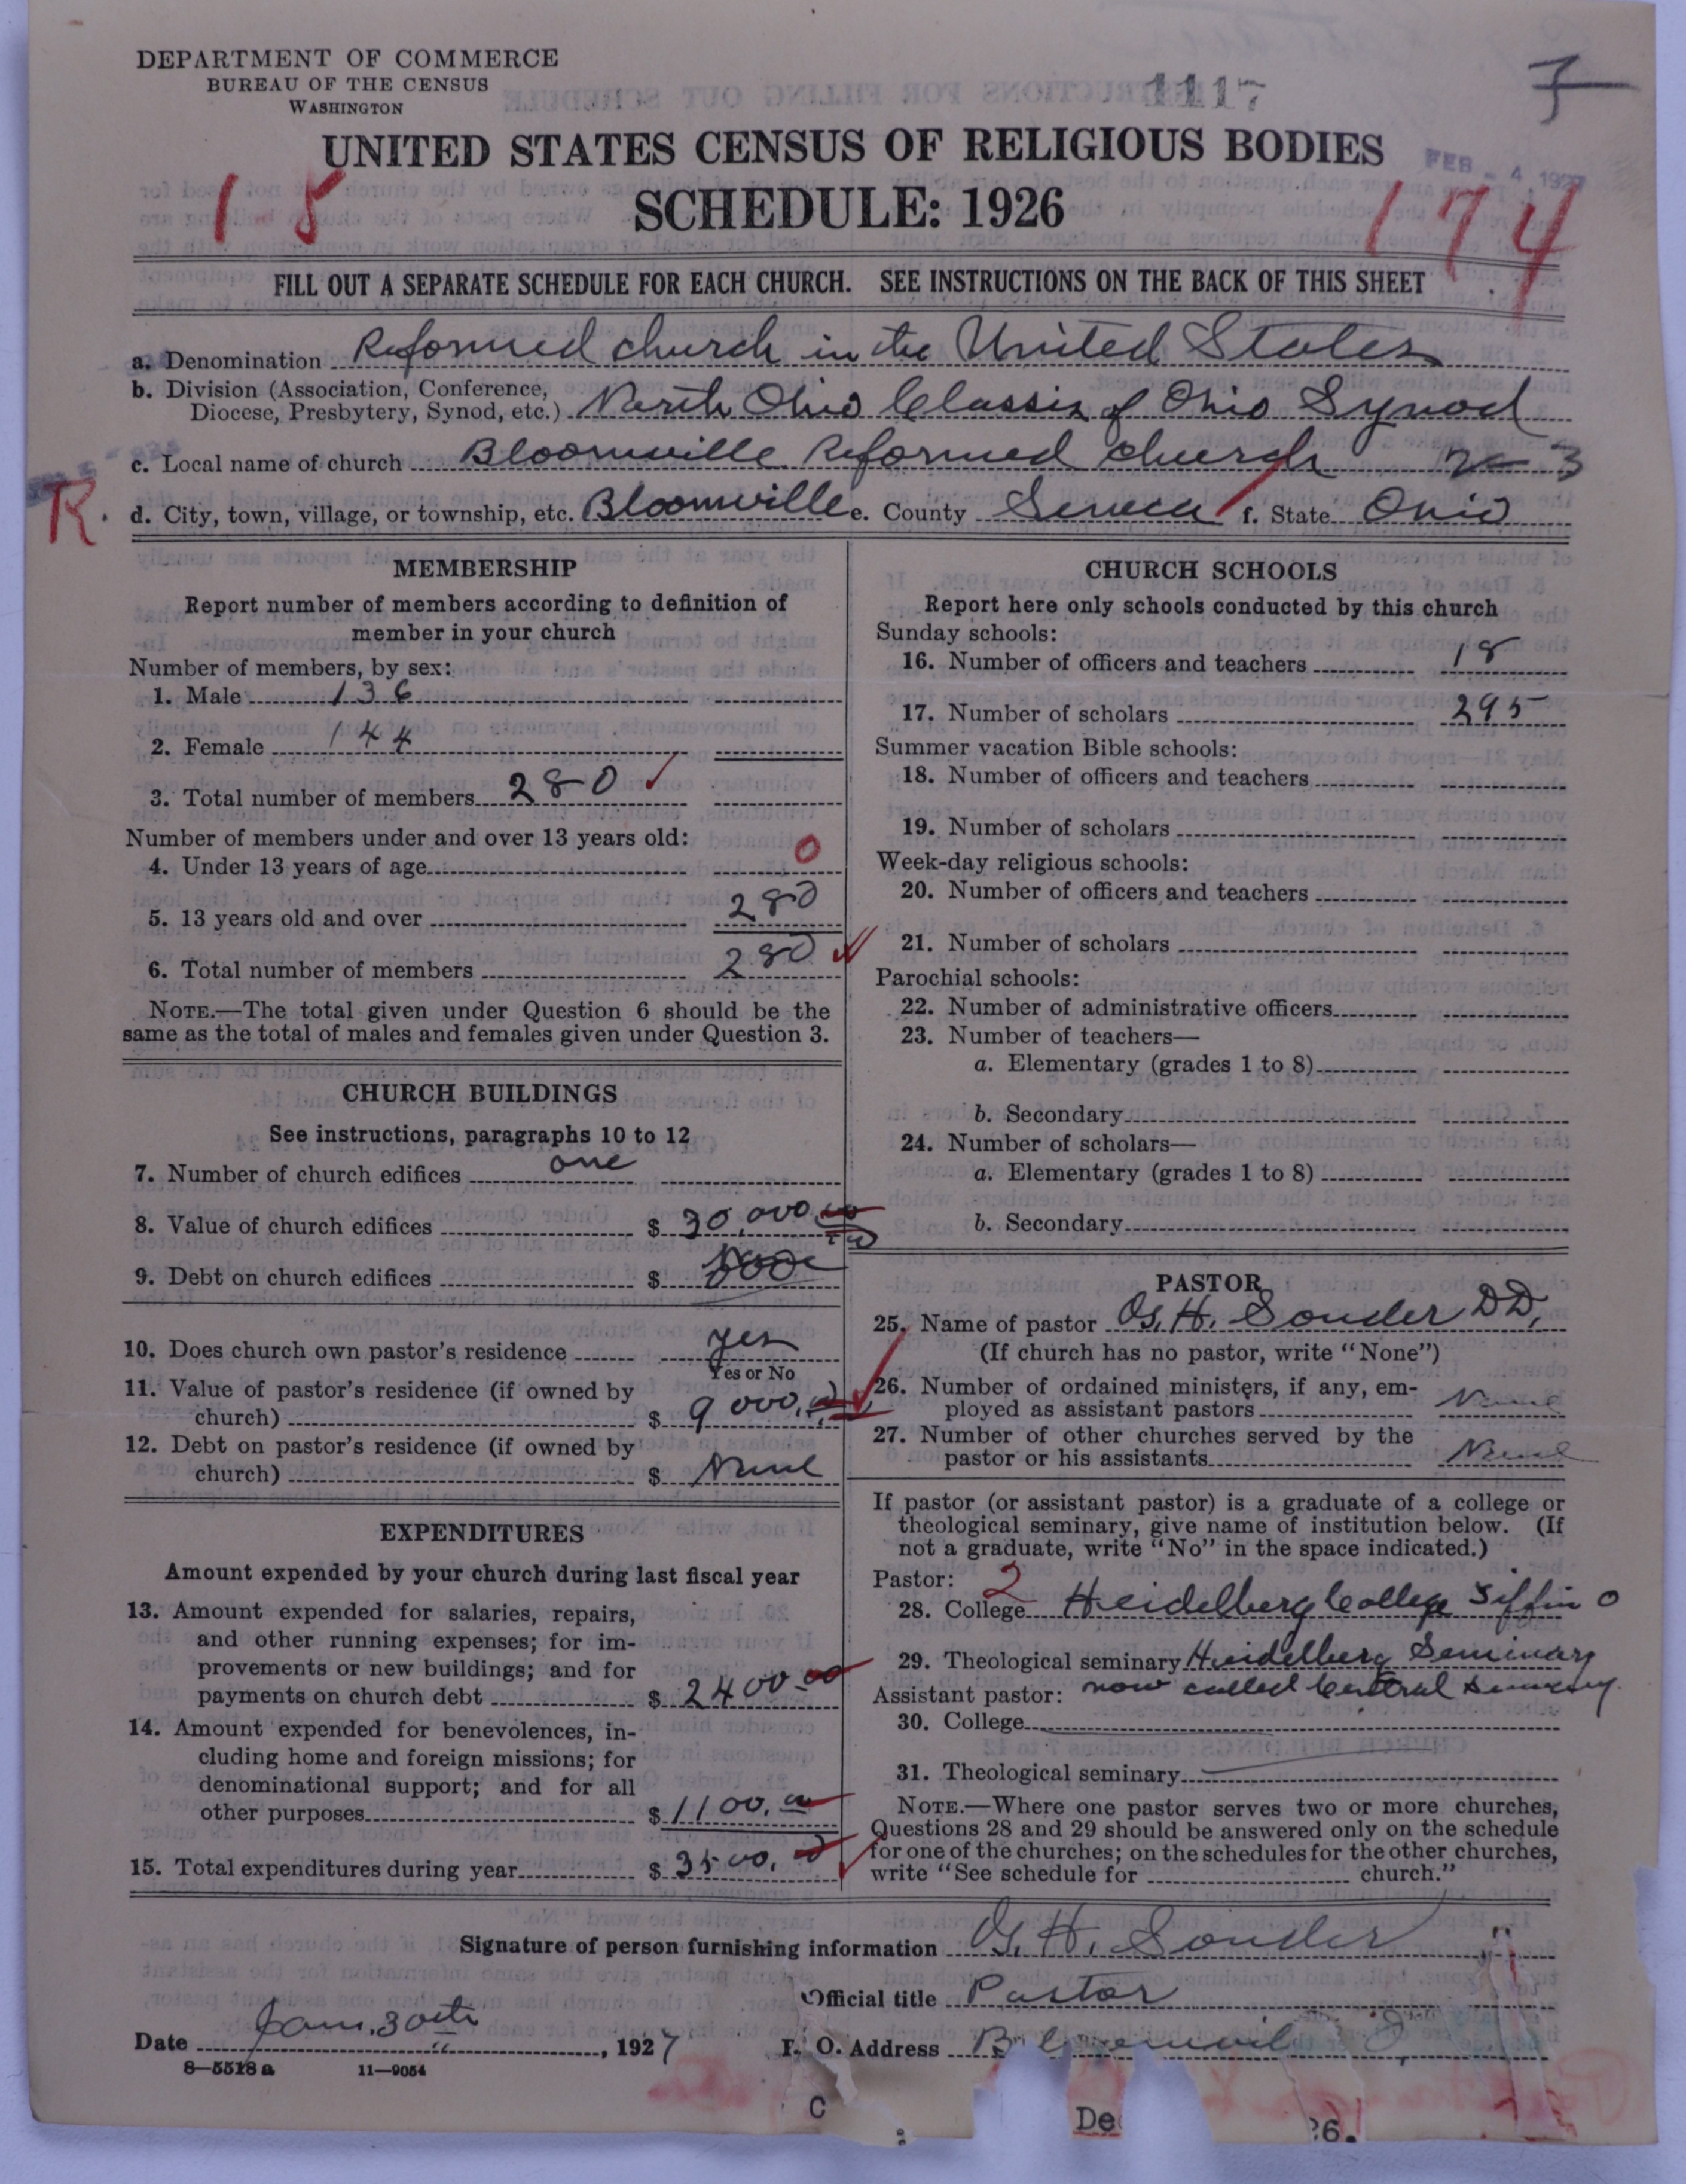 DEPARTMENT OF COMMERCE
BUREAU OF THE CENSUS
WASHINGTON
1117
UNITED STATES CENSUS OF RELIGIOUS BODIES
FEB - 4 1927
15
SCHEDULE: 1926
174
FILL OUT A SEPARATE SCHEDULE FOR EACH CHURCH. SEE INSTRUCTIONS ON THE BACK OF THIS SHEET
a. Denomination Reformed church in the United States
b. Division (Association, Conference,
Diocese, Presbytery, Synod, etc.) North Ohio Classis of Ohio Synod
c. Local name of church Bloomville Reformed church
R. d. City, town, village, or township, etc. Bloomville e. County Seneca f. State Ohio
MEMBERSHIP
Report number of members according to definition of
member in your church
Number of members, by sex:
1. Male 136
2. Female 144
3. Total number of members 280
Number of members under and over 13 years old:
4. Under 13 years of age 0
5. 13 years old and over 280
6. Total number of members 280
NOTE.—The total given under Question 6 should be the
same as the total of males and females given under Question 3.
CHURCH BUILDINGS
See instructions, paragraphs 10 to 12
7. Number of church edifices one
8. Value of church edifices $ 30,000.00
9. Debt on church edifices $
10. Does church own pastor's residence yes
Yes or No
11. Value of pastor's residence (if owned by
church) $ 9000.00
12. Debt on pastor's residence (if owned by
church) $ None
EXPENDITURES
Amount expended by your church during last fiscal year
13. Amount expended for salaries, repairs,
and other running expenses; for im-
provements or new buildings; and for
payments on church debt $ 2400.00
14. Amount expended for benevolences, in-
cluding home and foreign missions; for
denominational support; and for all
other purposes $ 1100.00
15. Total expenditures during year $ 3500.00
CHURCH SCHOOLS
Report here only schools conducted by this church
Sunday schools:
16. Number of officers and teachers 18
17. Number of scholars 295
Summer vacation Bible schools:
18. Number of officers and teachers
19. Number of scholars
Week-day religious schools:
20. Number of officers and teachers
21. Number of scholars
Parochial schools:
22. Number of administrative officers
23. Number of teachers—
a. Elementary (grades 1 to 8)
b. Secondary
24. Number of scholars—
a. Elementary (grades 1 to 8)
b. Secondary
PASTOR
25. Name of pastor H. Souder DD,
(If church has no pastor, write "None")
26. Number of ordained ministers, if any, em-
ployed as assistant pastors None
27. Number of other churches served by the
pastor or his assistants None
If pastor (or assistant pastor) is a graduate of a college or
theological seminary, give name of institution below. (If
not a graduate, write "No" in the space indicated.)
Pastor: 2
28. College Heidelberg College Tiffin O
29. Theological seminary Heidelberg Seminary
Assistant pastor: now called Central Seminary
30. College
31. Theological seminary
NOTE.—Where one pastor serves two or more churches,
Questions 28 and 29 should be answered only on the schedule
for one of the churches; on the schedules for the other churches,
write "See schedule for church."
Signature of person furnishing information H. Souder
Official title Pastor
Date Jan. 30th, 1927 P. O. Address Bloomvil O,
8—5518a 11—9054
C De 26.